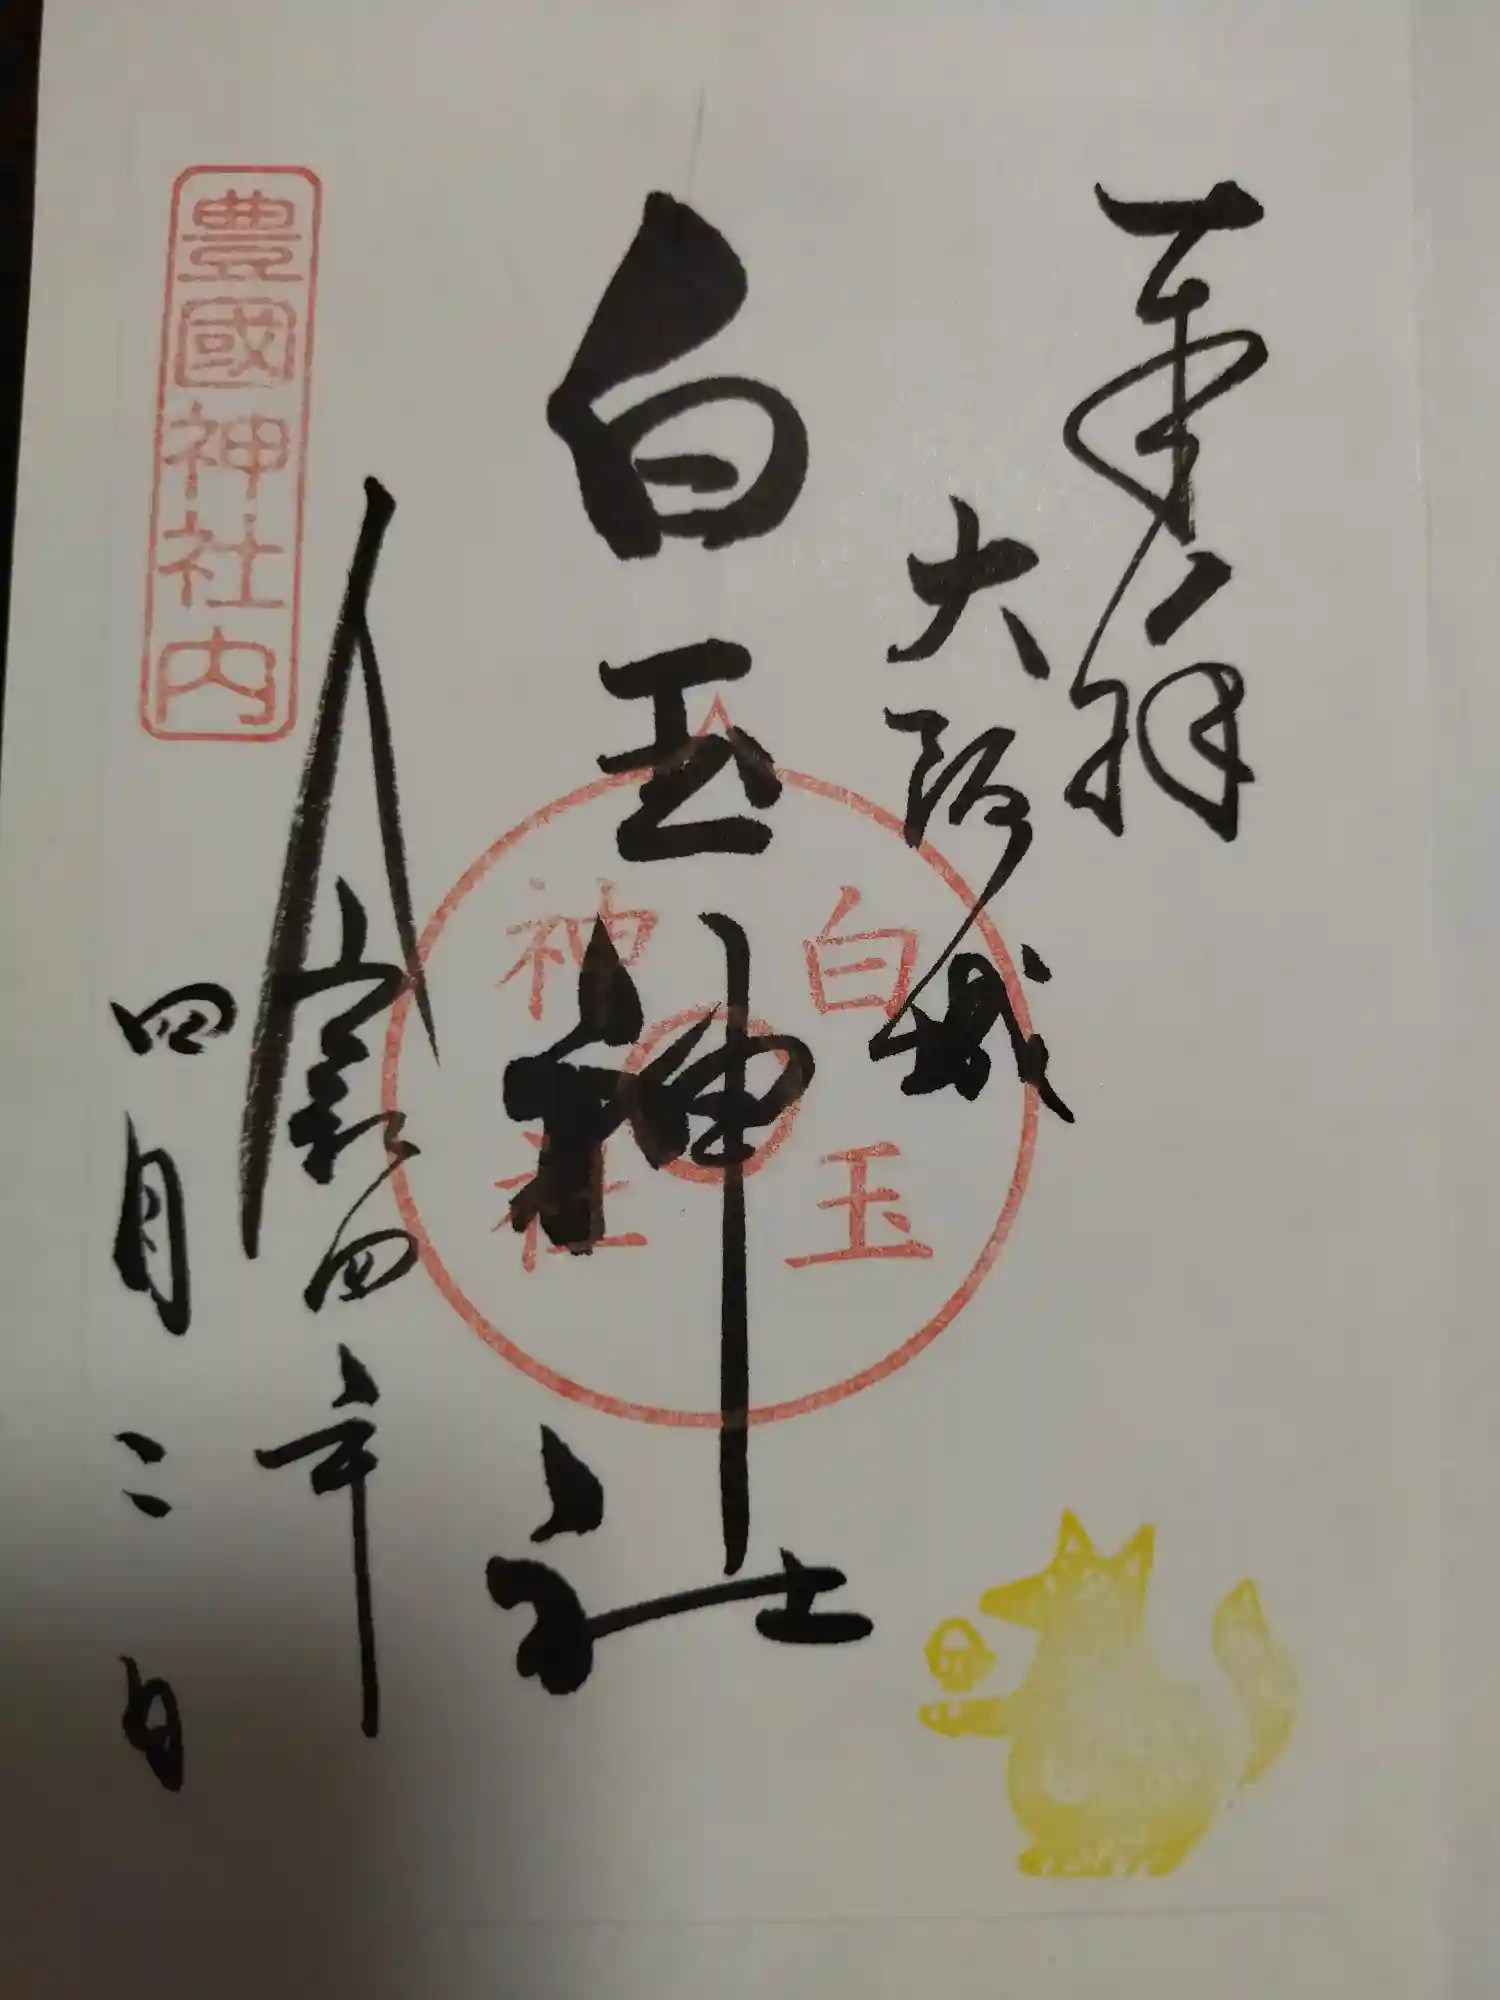 奉拝
大阪城
白玉神社
白玉
神社
令和四年
四月二日
豊國神社内